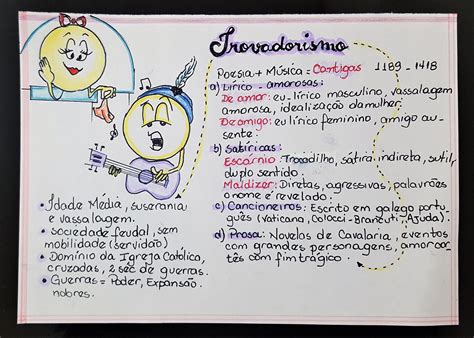 Trovadorismo
Poesia + Música = Cantigas 1189 - 1418
a) Lírico - amorosas:
De amor: eu-lírico masculino, vassalagem
amorosa, idealização da mulher.
De amigo: eu lírico feminino, amigo au-
sente.
b) Satíricas:
Escárnio: Trocadilho, sátira, indireta, sutil,
duplo sentido.
Maldizer: Diretas, agressivas, palavrões
o nome é revelado.
c) Cancioneiros: Escrito em galego portu-
guês (Vaticana, Colocci-Brancuti, Ajuda).
d) Prosa: Novelos de Cavalaria, eventos
com grandes personagens, amor cor-
tês com fim trágico.
• Idade Média, suserania
e vassalagem.
• sociedade feudal, sem
mobilidade (servidão)
• Domínio da Igreja Católica,
cruzadas, 2 sec de guerras.
• Guerras = Poder, Expansão.
nobres.